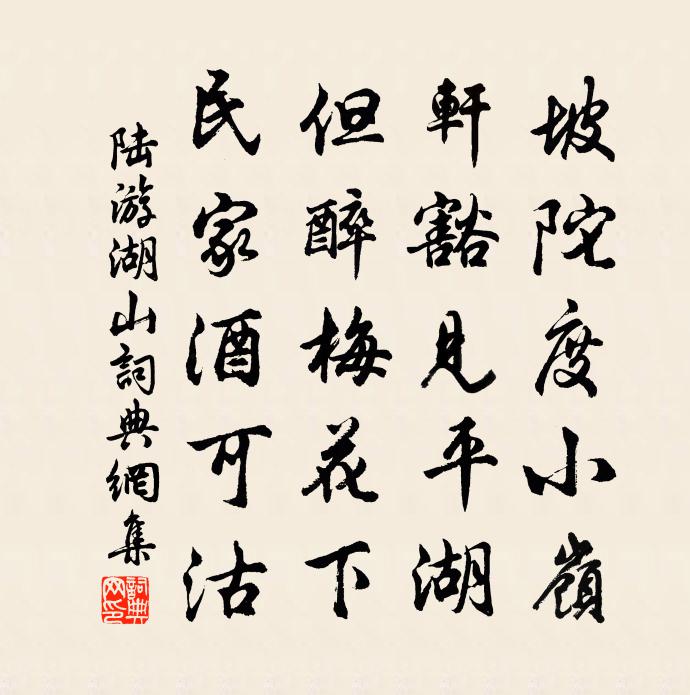 坡陀度小嶺
軒豁見平湖
但醉梅花下
民家酒可沽
陆游湖山詞典網集
詞典网印